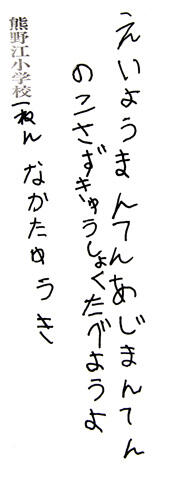 えいようまんてんあじまんてん
のこさずきゅうしょくたべようよ
熊野江小学校一ねんながたゆうき